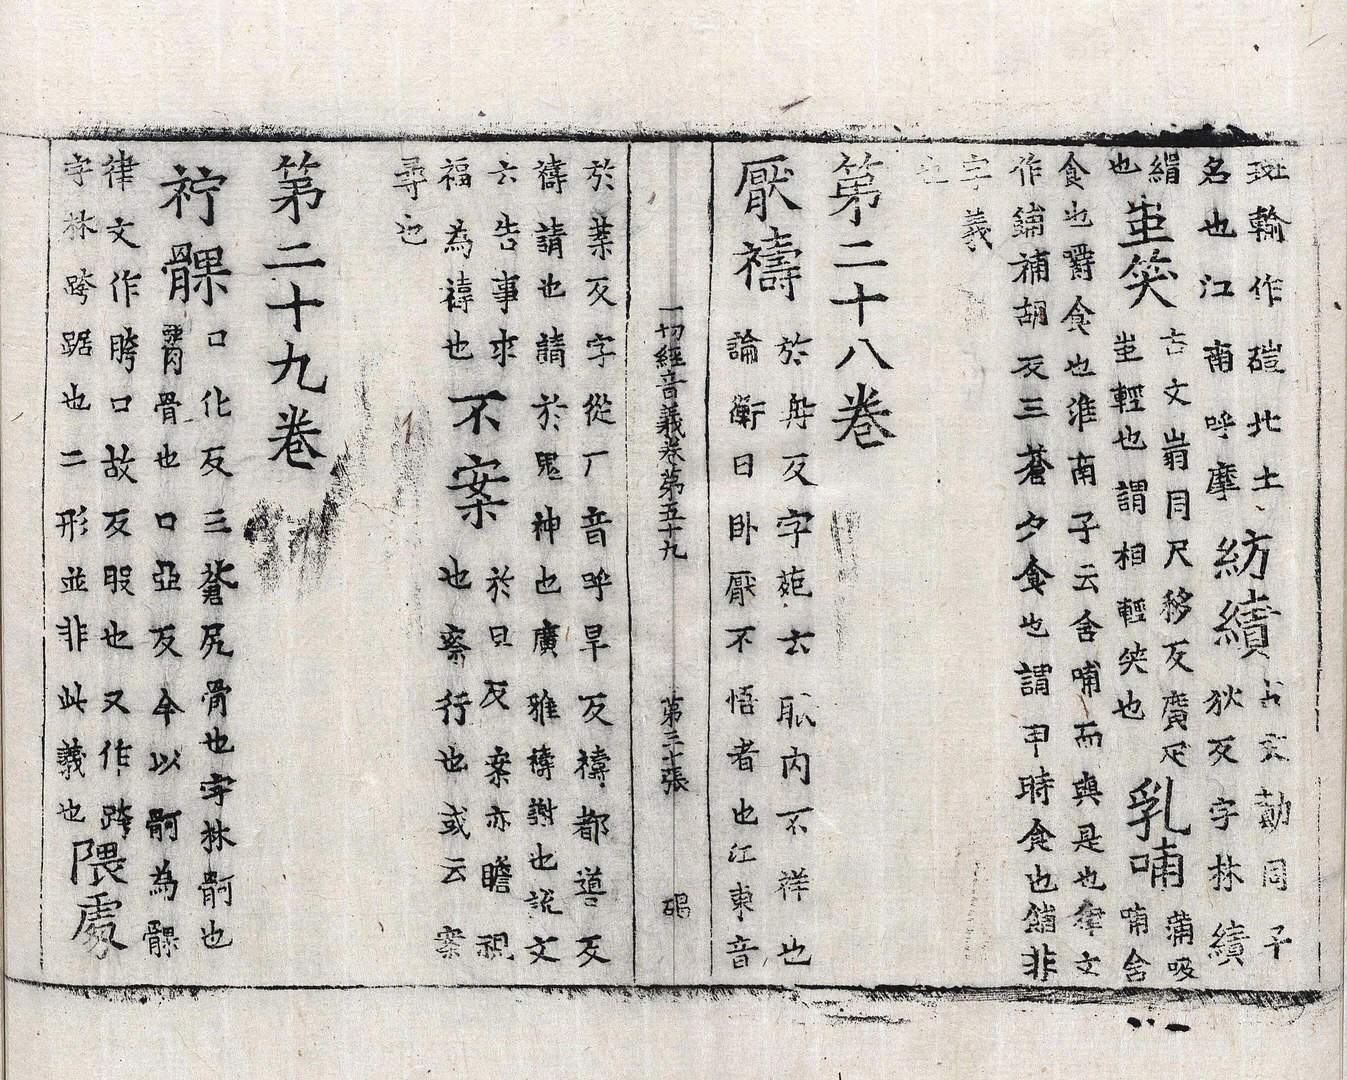 斑輪作磑北土
名也江南呼摩
紡績
古文勣同子
狄反字林績
緝
也
蚩笑
古文㞤同尺移反廣疋
蚩輕也謂相輕笑也
乳哺
蒲吸
哺含
食也嚼食也淮南子云含哺而與是也律文
作餔補胡反三蒼夕食也謂申時食也餔非
字義
也
第二十八卷
厭禱
於冉反字苑云眠內不祥也
論衡曰卧厭不悟者也江東音
一切經音義卷第五十九 第三十張 碣
於葉反字從厂音呼旱反禱都導反
禱請也請於鬼神也廣雅禱謝也說文
云告事求
福為禱也
不案
於旦反案亦瞻視
也察行也或云案
尋也
第二十九卷
髁
口化反三蒼尻骨也字林䯊也
臋骨也口亞反今以䯊為髁
律文作胯口故反股也又作跨
字林跨踞也二形並非此義也
隈處